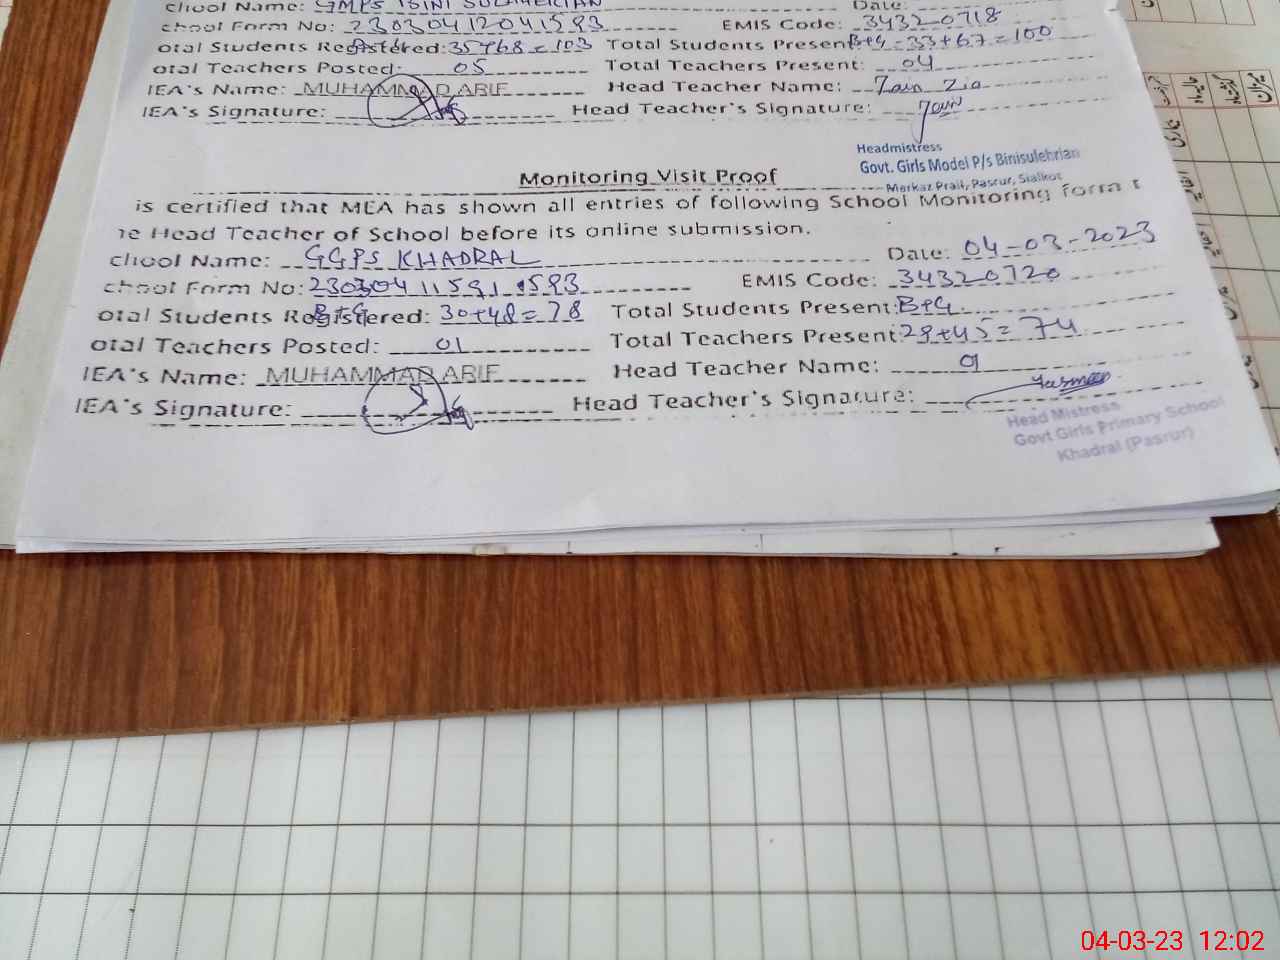 chool Name: GMPS BINI SULHERIAN Date:
chool Form No: 23030412041593 EMIS Code: 34320718
otal Students Registered: 35+68=103 Total Students Present: B+G - 33+67=100
otal Teachers Posted: 05 Total Teachers Present: 04
IEA's Name: MUHAMMAD ARIF Head Teacher Name: Zain Zia
IEA's Signature: Head Teacher's Signature: Zain
Headmistress
Govt. Girls Model P/s Binisulehrian
Markaz Prail, Pasrur, Sialkot
Monitoring Visit Proof
is certified that MEA has shown all entries of following School Monitoring format
he Head Teacher of School before its online submission.
chool Name: GGPS KHADRAL Date: 04-03-2023
chool Form No: 23030411591593 EMIS Code: 34320720
otal Students Registered: B+G 30+48=78 Total Students Present: B+G.
otal Teachers Posted: 01 Total Teachers Present: 29+45=74
IEA's Name: MUHAMMAD ARIF Head Teacher Name: 01
IEA's Signature: Head Teacher's Signature: Yasmeen
Head Mistress
Govt Girls Primary School
Khadral (Pasrur)
04-03-23 12:02